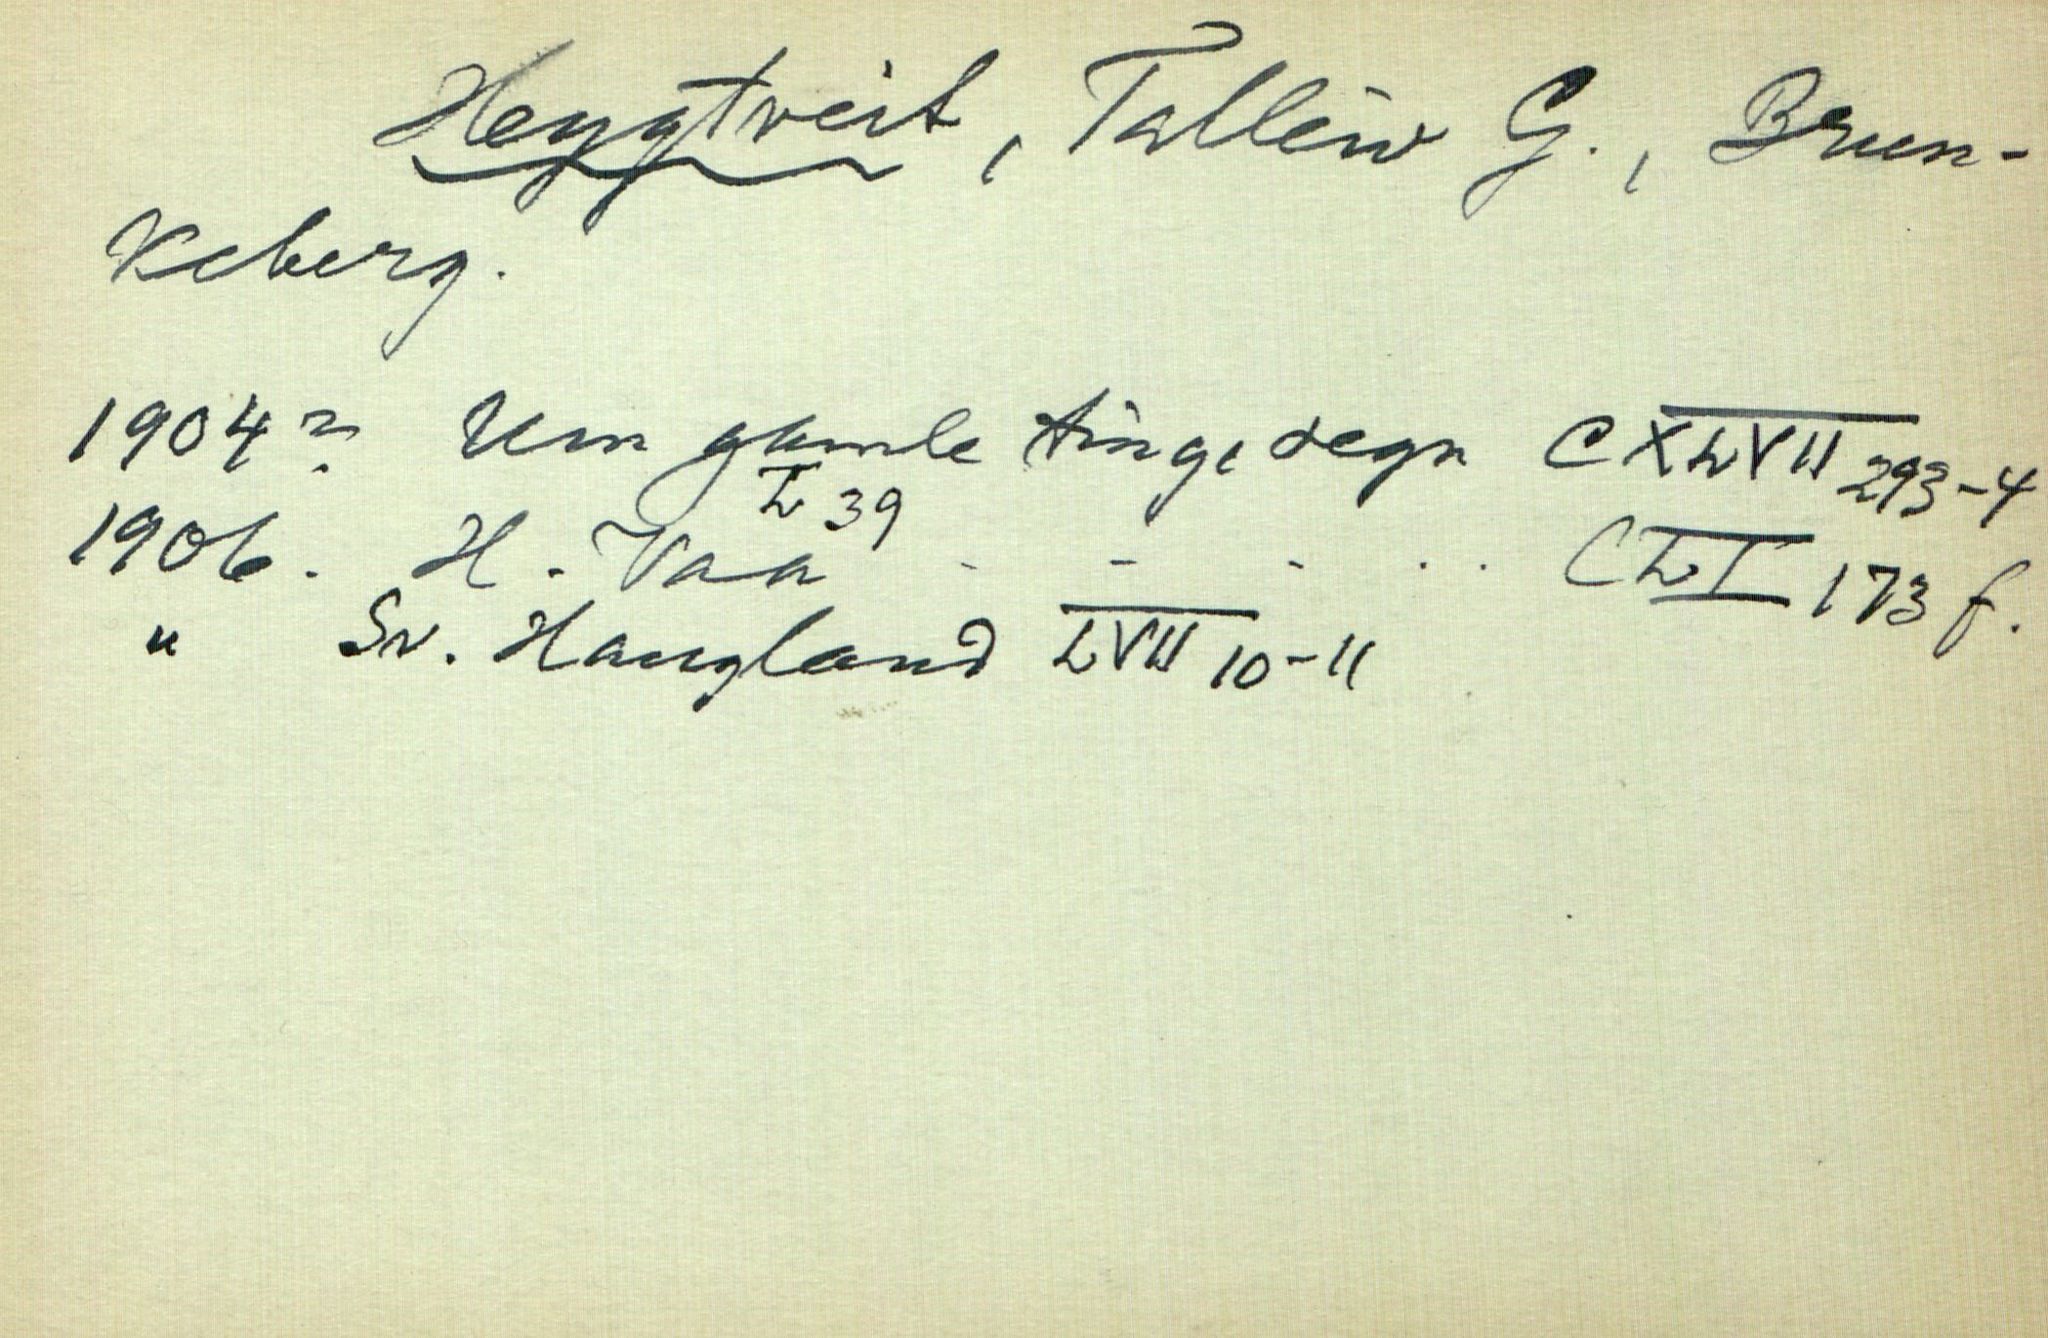 Heggtveit, Talleiv G., Brun-
keberg.
1904? Um gamle ting, segn CXLVII 293-4
L 39
1906. H. Vaa - - - . . CLI 173 f.
" Sv. Haugland LVII 10-11